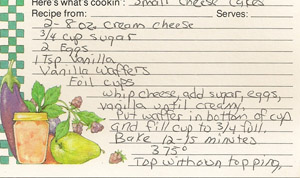 Here's what's cookin': Small Cheese Cakes
Recipe from: Serves:
2-8oz. cream cheese
3/4 cup sugar
2 Eggs
1 Tsp Vanilla
Vanilla Waffers
Foil cups
whip cheese, add sugar, eggs,
vanilla until creamy.
Put waffer in bottom of cup
and fill cup to 3/4 full.
Bake 12-15 minutes
375°
Top with own topping.